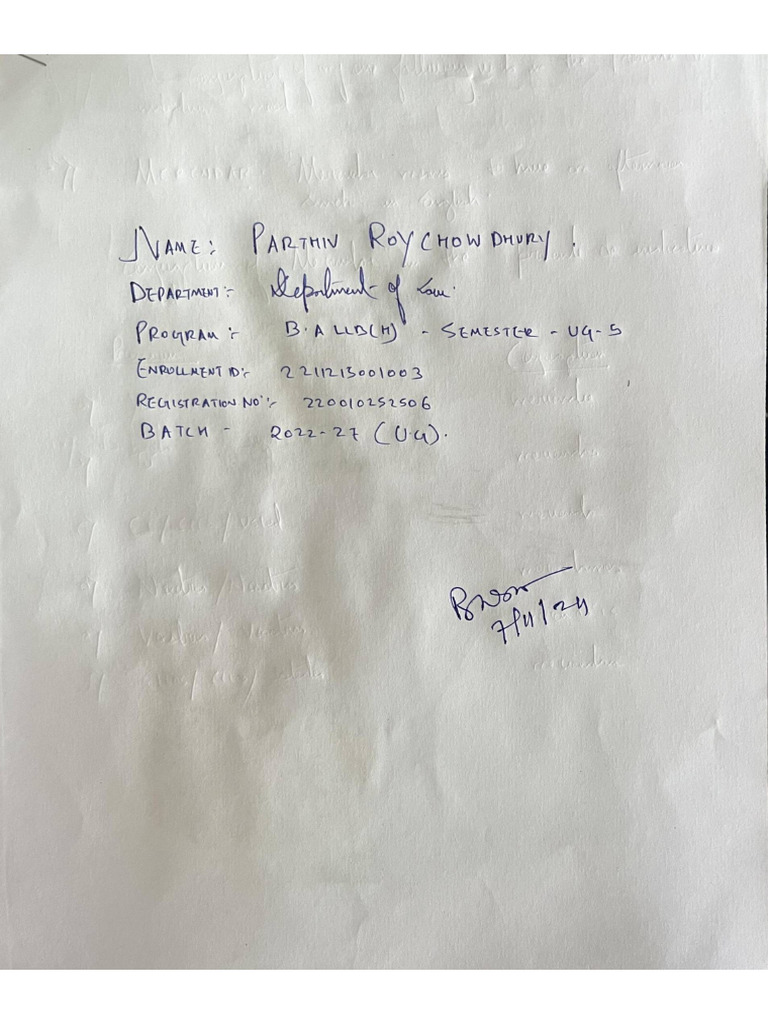 NAME:  PARTHIV ROYCHOWDHURY.
DEPARTMENT:- Department of Law.
PROGRAM:- B.A LLB(H) - SEMESTER - UG-5
ENROLLMENT ID:- 2211213001003
REGISTRATION NO:- 220010252506
BATCH - 2022-27 (U.G).
7/11/24